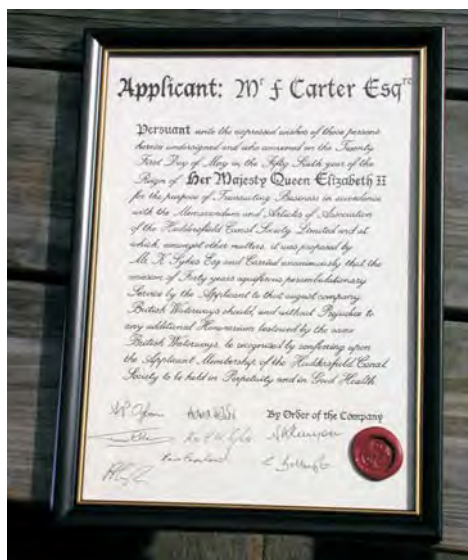 Applicant: Mr F Carter Esqre
Persuant unto the expressed wishes of those persons
hereon undersigned and who convened on the Twenty
First Day of May in the Fifty Sixth year of the
Reign of Her Majesty Queen Elizabeth II
for the purpose of Transacting Business in accordance
with the Memorandum and Articles of Association
of the Huddersfield Canal Society Limited and at
which, amongst other matters, it was proposed by
Mr. K. Sykes Esq and Carried unanimously that the
occasion of Forty years aquiferous perambulationary
Service by the Applicant to that august company
British Waterways should, and without Prejudice to
any additional Honorarium bestowed by the same
British Waterways, be recognised by conferring upon
the Applicant Membership of the Huddersfield Canal
Society to be held in Perpetuity and in Good Health.
By Order of the Company